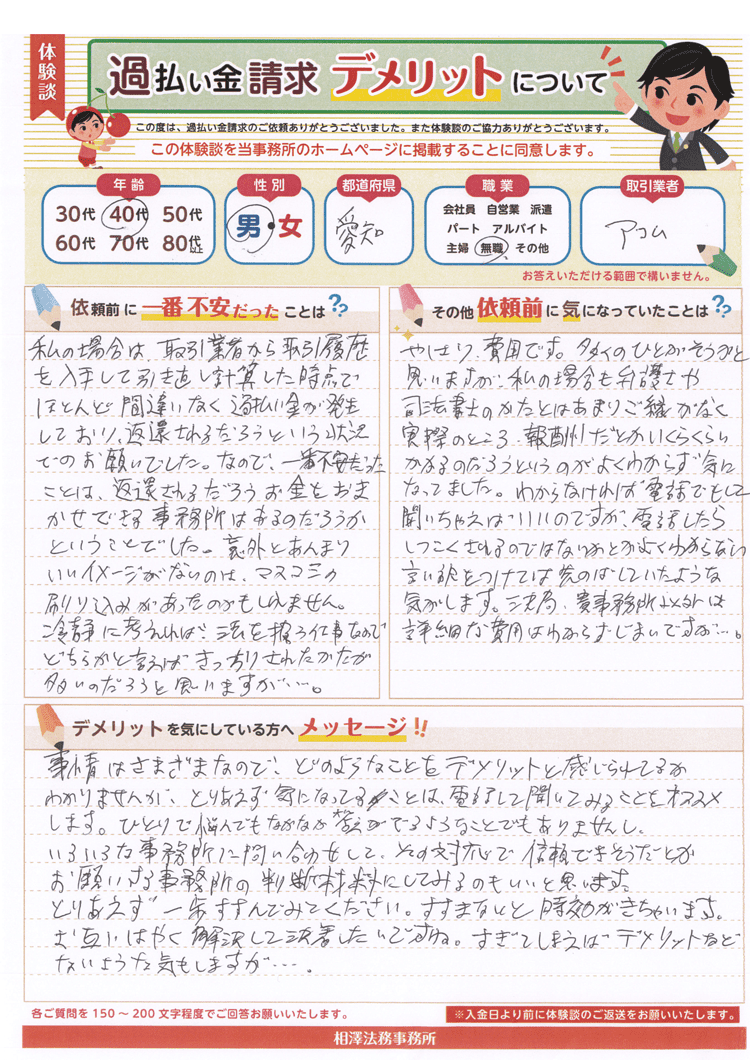 体験談
過払い金請求 デメリットについて
この度は、過払い金請求のご依頼ありがとうございました。また体験談のご協力ありがとうございます。
この体験談を当事務所のホームページに掲載することに同意します。
年齢
30代 40代 50代
60代 70代 80代以上
性別
男・女
都道府県
愛知
職業
会社員 自営業 派遣
パート アルバイト
主婦 無職 その他
取引業者
アコム
お答えいただける範囲で構いません。
依頼前に一番不安だったことは??
私の場合は、取引業者から取引履歴
を入手して引き直し計算した時点で
ほとんど間違いなく過払い金が発生
しており、返還されるだろうという状況
でのお願いでした。なので、一番不安だった
ことは、返還されるだろうお金をおま
かせできる事務所はあるのだろうか
ということでした。意外とあんまり
いいイメージがないのは、マスコミの
刷り込みがあったのかもしれません。
冷静に考えれば、法を扱う仕事なので
どちらかと言えばきっちりされたかたが
多いのだろうと思いますが…。
その他依頼前に気になっていたことは??
やはり、費用です。多くのひとがそうかと
思いますが、私の場合も弁護士や
司法書士のかたとはあまりご縁がなく
実際のところ、報酬りだとかいくらくらい
かかるのだろうというのがよくわからず気に
なってました。わからなければ電話でもして
聞いちゃえばいいのですが、電話したら
しつこくされるのではないかとかよくわからない
言い訳をつけては先のばしていたような
気がします。結局、貴事務所以外は
詳細な費用はわからずじまいですが…。
デメリットを気にしている方へメッセージ!!
事情はさまざまなので、どのようなことをデメリットと感じられてるか
わかりませんが、とりあえず気になってることは、電話して聞いてみることをオススメ
します。ひとりで悩んでもなかなか答えがでるようなことでもありませんし、
いろいろな事務所に問い合わせして、その対応で信頼できそうだとか
お願いする事務所の判断材料にしてみるのもいいと思います。
とりあえず一歩すすんでみてください。すすまないと時効がきちゃいます。
お互いはやく解決して決着したいですね。すぎてしまえばデメリットなど
ないような気もしますが…。
各ご質問を150～200文字程度でご回答お願いいたします。
※入金日より前に体験談のご返送をお願いいたします。
相澤法務事務所